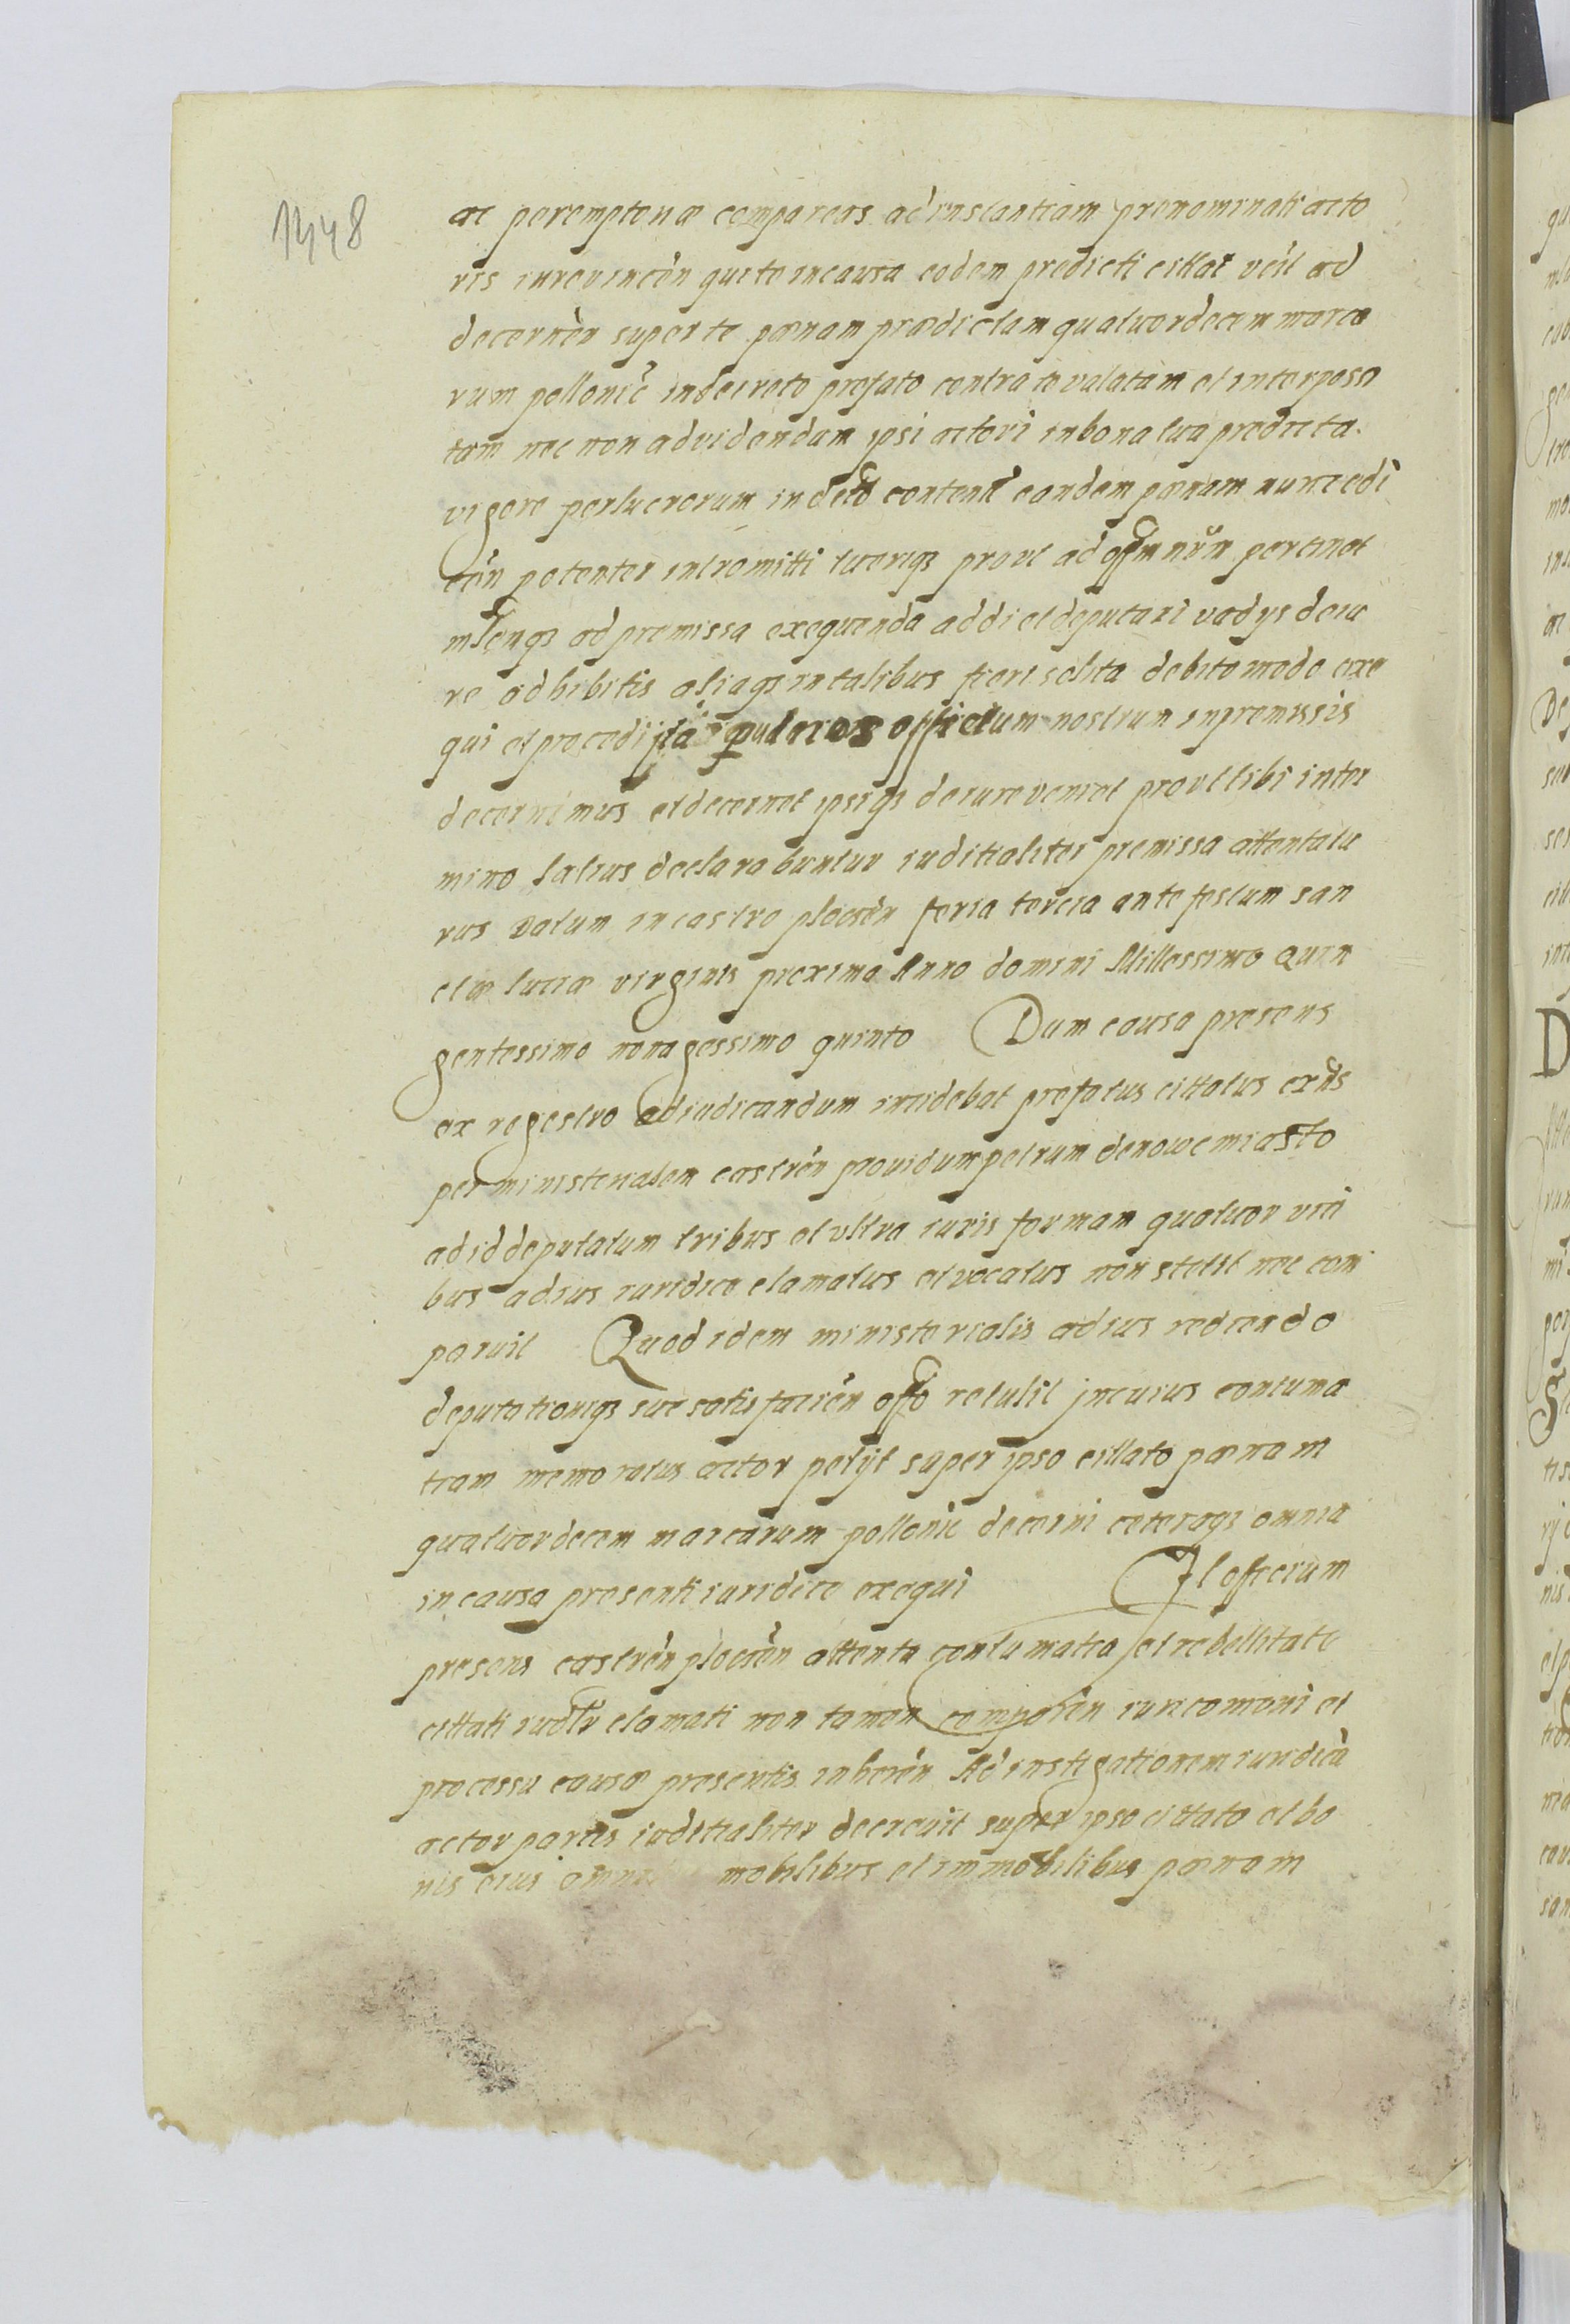 1448
ac peremptoriæ compareas ad instantiam prenominati acto
ris in revincen qui te in causa eodem predicti cittat veil ad
decernèn super te pœnam prædictam quatuordecem marca
rum pollonic in decreto prefato contra te valatam et interposi
tam nec non ad videndam ipsi actori in bona tua predicta
vigore perlucrorum in decto content eandem pœnam nunc edi
cèn potenter intromitti tuerique prout ad offm nrūm pertinet
mlemque ad premissa exequenda addi et deputari vadys de iu
re adhibitis aliaque in talibus fieri solita debito modo exe
qui et procedi officium nostrum in premissis
decernimus et decernet ipsique de iure veniet prout tibi in ter
mino latius declarabuntur iuditialiter premissa attentatu
rus Datum in castro plocèn feria tercia ante festum san
ctæ luciæ virginis proxima Anno domini Millessimo quin
gentessimo nonagessimo quinto Dum causa presens
ex regestro adiudicandum incidebat prefatus cittatus exns
per ministerialem castrèn providum petrum de nowemiasto
ad id deputatum tribus et ultra iuris formam quatuor vici
bus ad ius iuridice clamatus et vocatus non stetit nec com
paruit Quod idem ministerialis ad ius redeundo
deputationique sue satisfacièn offo retulit in cuius contuma
tiam memoratus actor petijt super ipso cittato pœnam
quatuordecem marcarum pollonic decerni ceteraque omnia
in causa presenti iuridice exequi Et officium
presens castrèn plocèn attenta contumatia et rebellitate
cittati iudlr clamati non tamen comparèn iuri comuni et
processu causæ presentis inherèn Ad instigationem iuridicà
actor partis iuditialiter decrevit super ipso cittato et bo
nis eius mobilibus et immobilibus pœnam